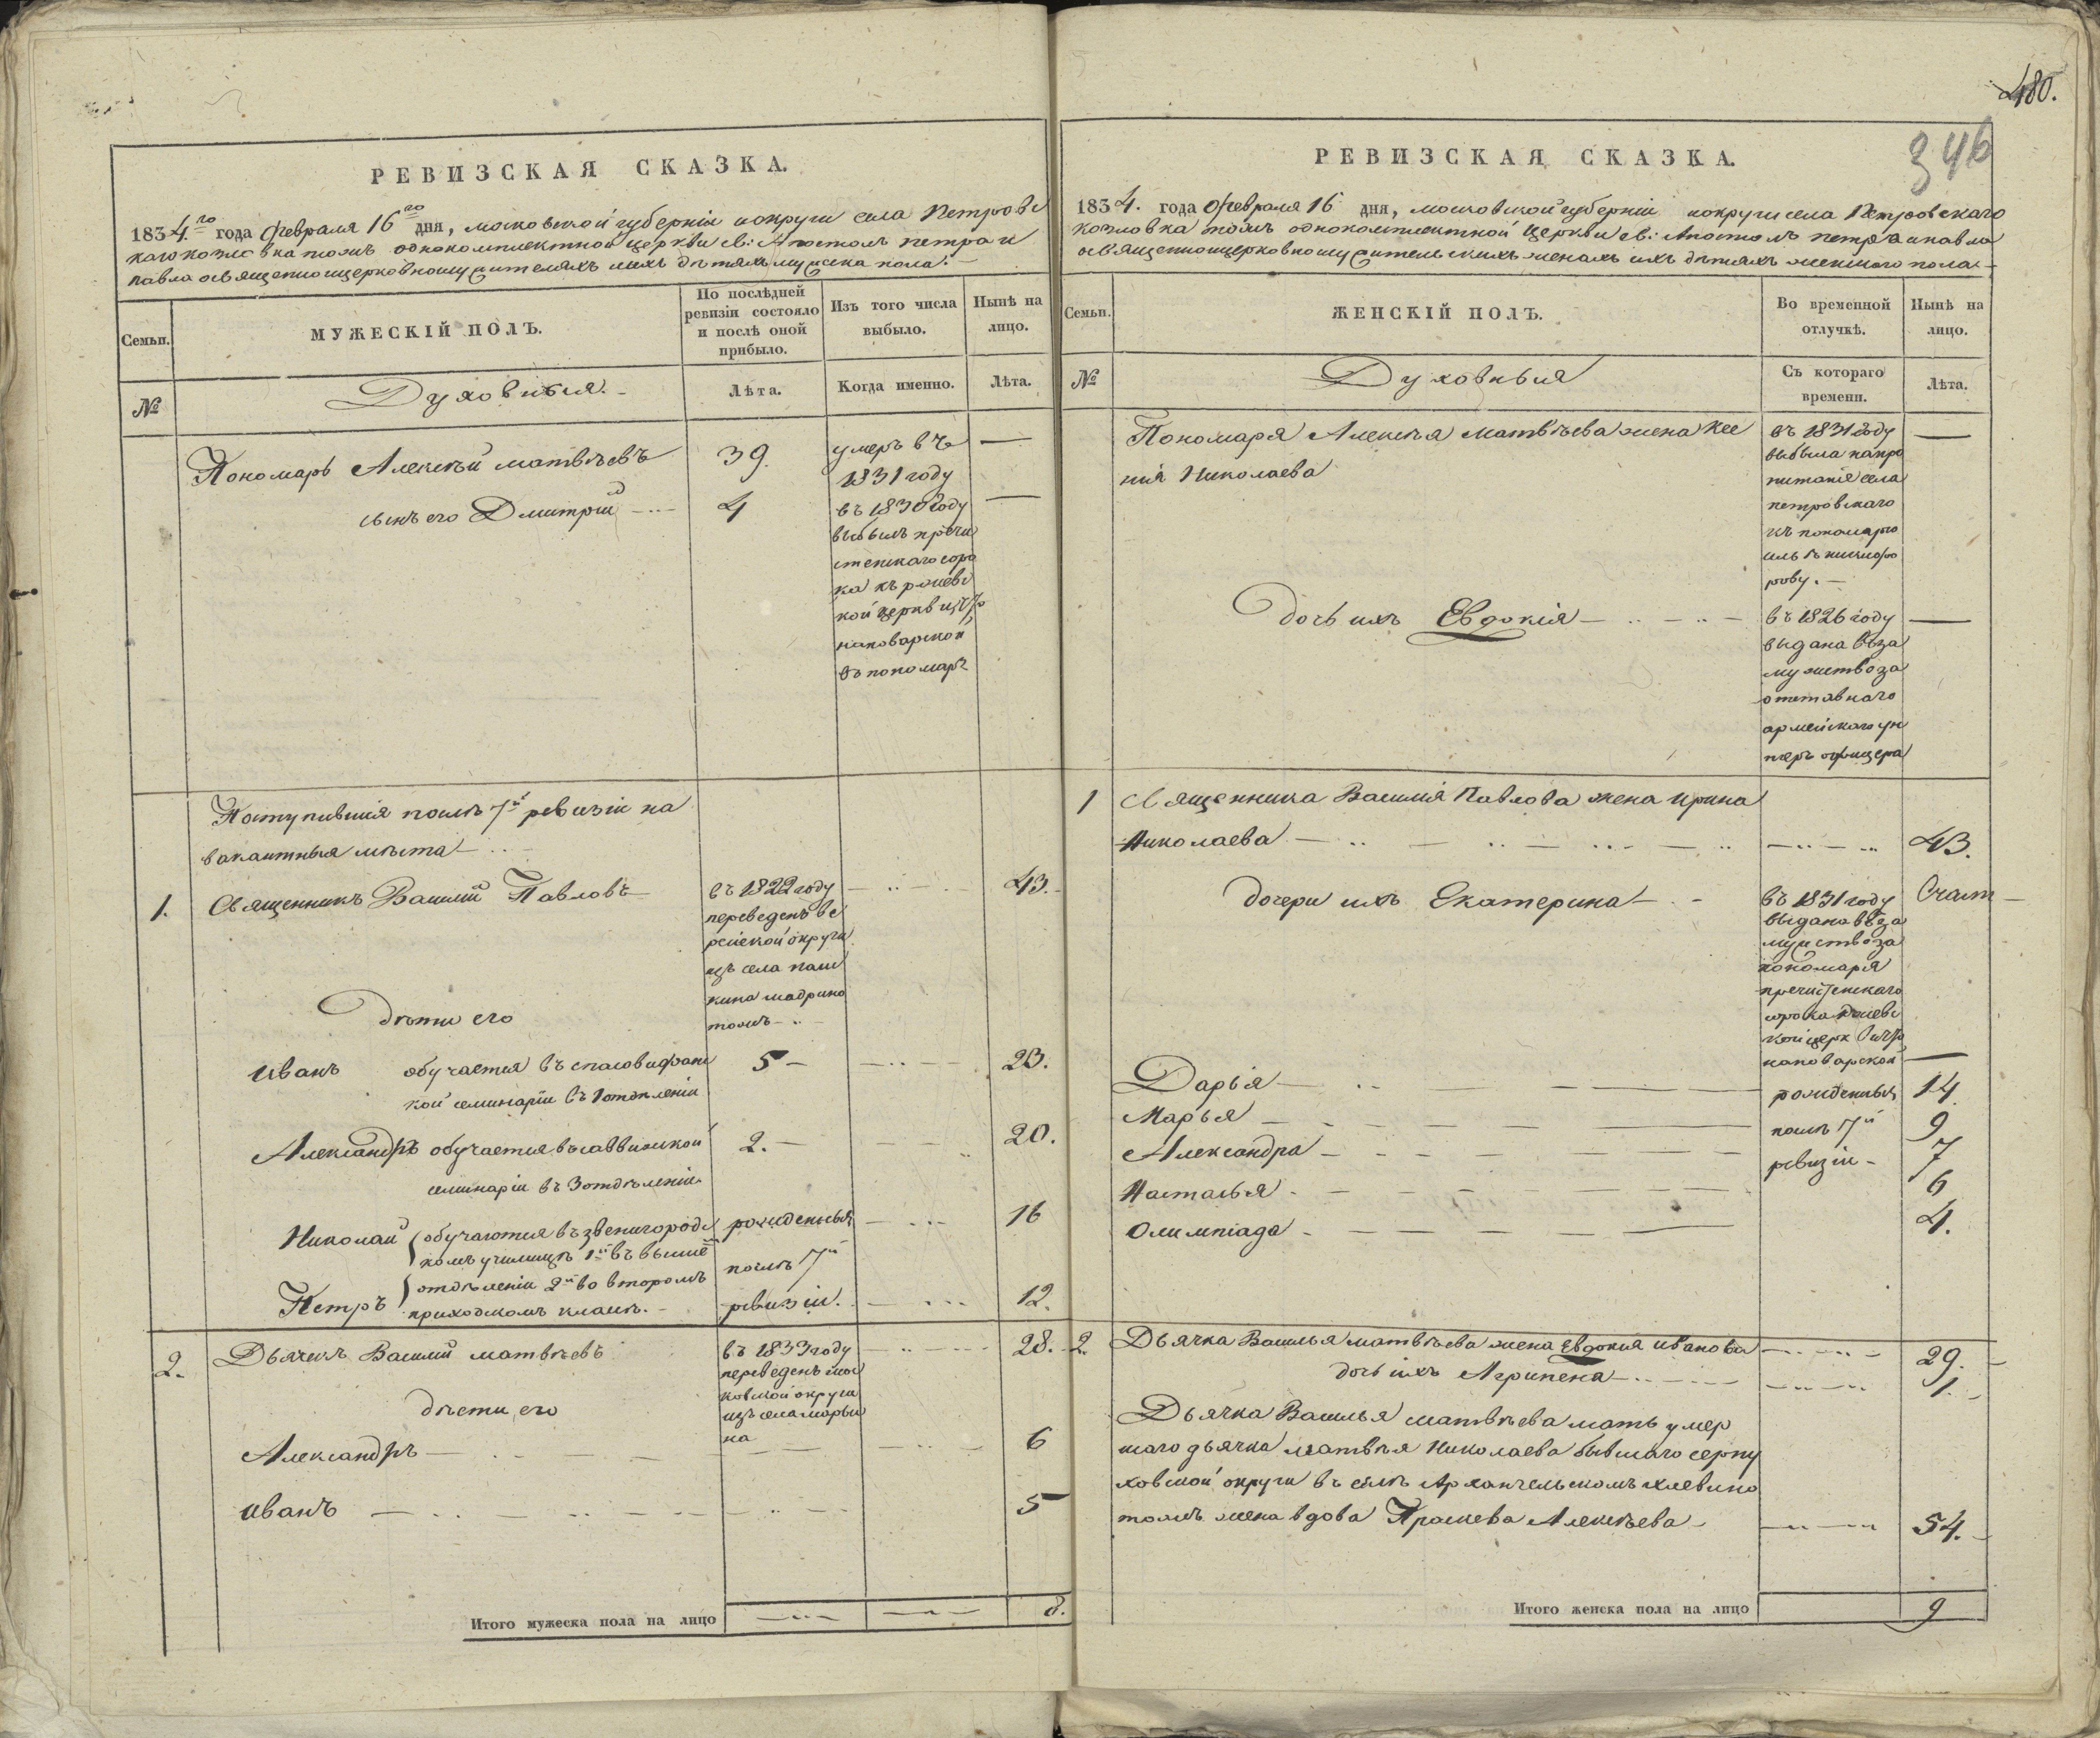 480.
346
РЕВИЗСКАЯ СКАЗКА.
1834.го года февраля 16го дня, московской губернiи и округи села Петровс
каго козловка тожъ однокомплектной церкви св: Апостолъ петра и
павла освященноцерковнослужителяхъ и ихъ дѣтяхъ мужеска пола. —
Семьи.
МУЖЕСКІЙ ПОЛЪ.
По послѣдней
ревизіи состояло
и послѣ оной
прибыло.
Изъ того числа
выбыло.
Нынѣ на
лицо.
№
Духовныя. —
Лѣта.
Когда именно.
Лѣта.
Пономарь Алексѣй матвѣевъ
39.
умеръ въ
1831 году
—
сынъ его Дмитрiй
4
въ 1830 году
—
выбылъ пречи
стенскаго соро
ка къ ржевс
кой церкви, что
на поварской
въ пономари
Поступившiя послѣ 7й ревизiи на
вакантныя мѣста —
1.
Священникъ Василiй Павловъ
въ 1822 году
43.
переведенъ ве
рейской округи
изъ села паш
кина мадрино
тожъ —
дѣти его
Иванъ
обучается въ спасовифанс
кой семинарiи въ 1 отдѣленiи
5 —
23.
Александръ
обучается въ саввинской
семинарiи въ 3 отдѣленiи
2. —
20.
Николай
обучаются въ звенигородс
комъ училищѣ 1й въ высшемъ
рожденныя
16
Петръ
отдѣленiи 2й во второмъ
приходскомъ классѣ. —
послѣ 7й
ревизiи.
12.
2.
Дьячекъ Василiй матвѣевъ
въ 1833 году
28.
переведенъ мос
ковской округи
изъ села марьи
на
дѣти его
Александръ
6
Иванъ
5
Итого мужеска пола на лицо
8.
РЕВИЗСКАЯ СКАЗКА.
1834. года февраля 16 дня, московской губернiи и округи села Петровскаго
козловка тожъ однокомплектной церкви св: Апостолъ петра и павла
освященноцерковнослужительскихъ женахъ и ихъ дѣтяхъ женскаго пола —
Семьи.
ЖЕНСКІЙ ПОЛЪ.
Во временной
отлучкѣ.
Нынѣ на
лицо.
№
Духовныя
Съ котораго
времени.
Лѣта.
Пономаря Алексѣя матвѣева жена Ксе
нiя Николаева
въ 1831 году
—
выбыла на про
питанiе села
петровскаго
къ пономарю
никифо
рову. —
дочь ихъ Евдокiя
въ 1826 году
—
выдана въ за
мужство за
отставнаго
армейскаго ун
теръ офицера
1
Священника Василiя Павлова жена Ирина
Николаева
43.
дочери ихъ Екатерина
въ 1831 году
выдана въ за
мужство за
пономаря
пречистенскаго
сорока ржевс
кой церк что
на поварской
—
Дарья
рожденныя
14
Марья
послѣ 7й
9
Александра
ревизiи —
7
Насталья
6
Олимпiада
4.
2.
Дьячка Василья матвѣева жена Евдокия Иванова
29.
дочь ихъ Агрипена
1.
Дьячка Василья матвѣева мать умер
шаго дьячка матвѣя Николаева бывшаго серпу
ховской округи въ селѣ Архангельскомъ хлевино
тожъ жена вдова Прасковя Алексѣева
54.
Итого женска пола на лицо
9